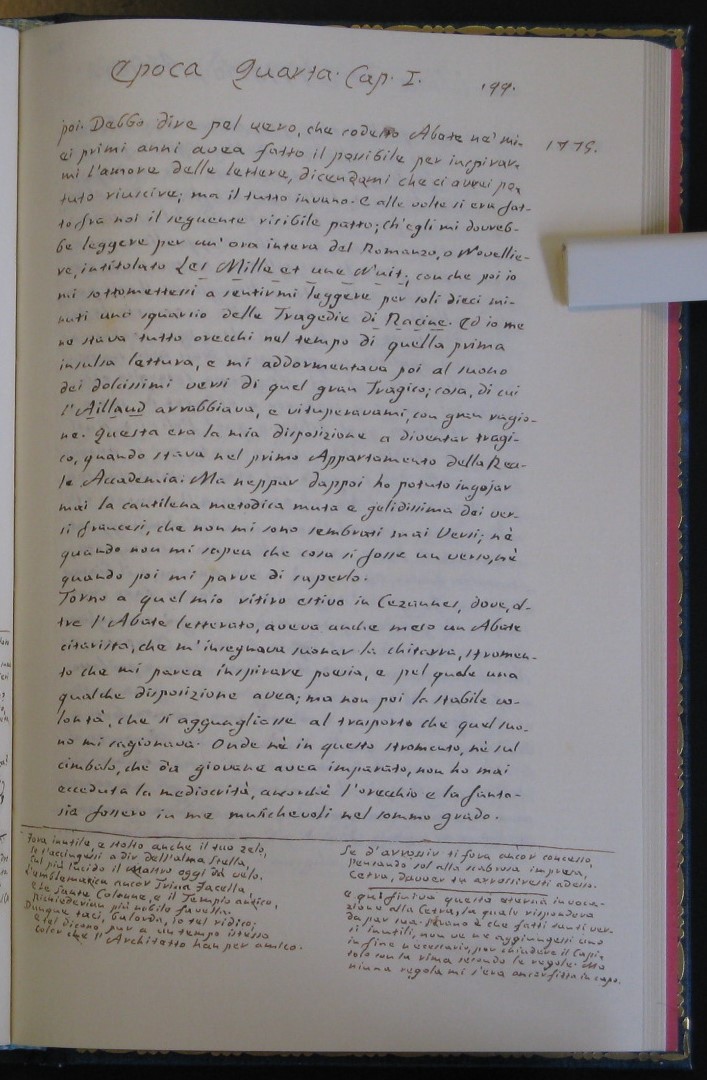 Epoca Quarta. Cap. I. 199.
1775.
poi. Debbo dire pel vero, che codesto Abate ne' mi-
ei primi anni avea fatto il possibile per inspirar-
mi l'amore delle lettere, dicendomi che ci avrei po-
tuto riuscire; ma il tutto invano. E alle volte si era fat-
to fra noi il seguente risibile patto; Ch'egli mi dovreb-
be leggere per un' ora intera del Romanzo, o Novellie-
re, intitolato Les Mille et une Nuit; con che poi io
mi sottomettessi a sentirmi leggere per soli dieci mi-
nuti uno squarcio delle Tragedie di Racine. Ed io me
ne stava tutto orecchi nel tempo di quella prima
insulsa lettura, e mi addormentava poi al suono
dei dolcissimi versi di quel gran Tragico; cosa, di cui
l'Aillaud arrabbiava, e vituperavami, con gran ragio-
ne. Questa era la mia disposizione a diventar tragi-
co, quando stava nel primo Appartamento della Rea-
le Accademia. Ma neppur dappoi ho potuto ingojar
mai la cantilena metodica muta e gelidissima dei ver-
si francesi, che non mi sono sembrati mai Versi; nè
quando non mi sapea che cosa si fosse un verso, nè
quando poi mi parve di saperlo.
Torno a quel mio ritiro estivo in Cezannes, dove, ol-
tre l'Abate letterato, aveva anche meco un Abate
citarista, che m'insegnava suonar la chitarra, stromen-
to che mi parea inspirare poesia, e pel quale una
qualche disposizione avea; ma non poi la stabile vo-
lontà, che si agguagliasse al trasporto che quel suo-
no mi cagionava. Onde nè in questo stromento, nè sul
cimbalo, che da giovane avea imparato, non ho mai
ecceduta la mediocrità, ancorchè l'orecchio e la fanta-
sia fossero in me musichevoli nel sommo grado.
Fora inutile, e stolto anche il tuo zelo,
Se t'accingessi a dir dell'alma Stella,
Cui più lucido il Mastro oggi dà velo.
L'emblematica ancor Trina Facella,
E le Sante Colonne, e il Tempio antico,
Richiederian più nobile favella.
Dunque taci, balorda, io tel ridico;
E tel dicono pur a un tempo istesso
Color che l'Architetto han per amico.
Se d'arrossir ti fora ancor concesso,
Pensando sol alla scabrosa impresa,
Cetra, davver tu arrossiresti adesso.
E qui finiva questa eterna invoca-
zione alla Cetra, la quale rispondeva
da par sua. Strano è che fatti tanti ver-
si inutili, non ve ne aggiungessi uno
in fine necessario, per chiudere il Capi-
tolo con la rima secondo le regole. Ma
niuna regola mi s'era ancor fitta in capo.